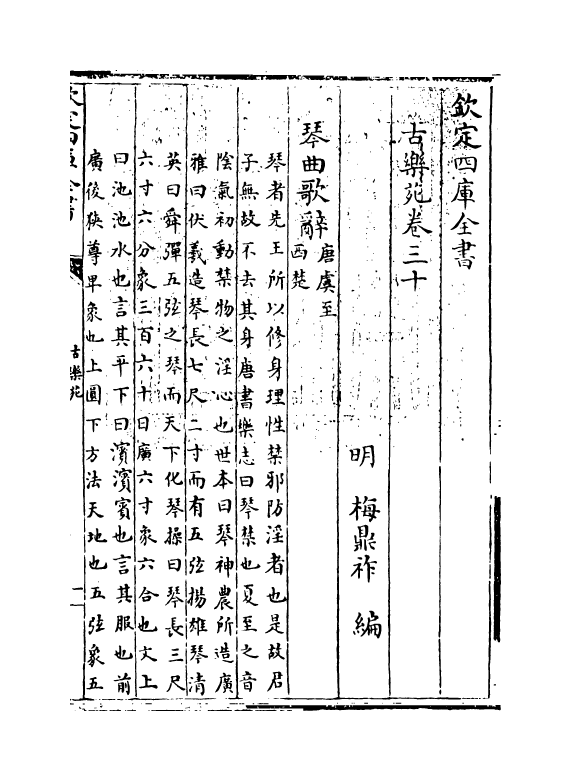 欽定四庫全書
古樂苑卷三十
明 梅鼎祚 編
琴曲歌辭唐虞至西楚
琴者先王所以修身理性禁邪防淫者也是故君
子無故不去其身唐書樂志曰琴禁也夏至之音
陰氣初動禁物之淫心也世本曰琴神農所造廣
雅曰伏羲造琴長七尺二寸而有五弦揚雄琴清
英曰舜彈五弦之琴而天下化琴操曰琴長三尺
六寸六分象三百六十日廣六寸象六合也文上
曰池池水也言其平下曰濱濱賓也言其服也前
廣後狹尊卑象也上圓下方法天地也五弦象五
古樂苑
一